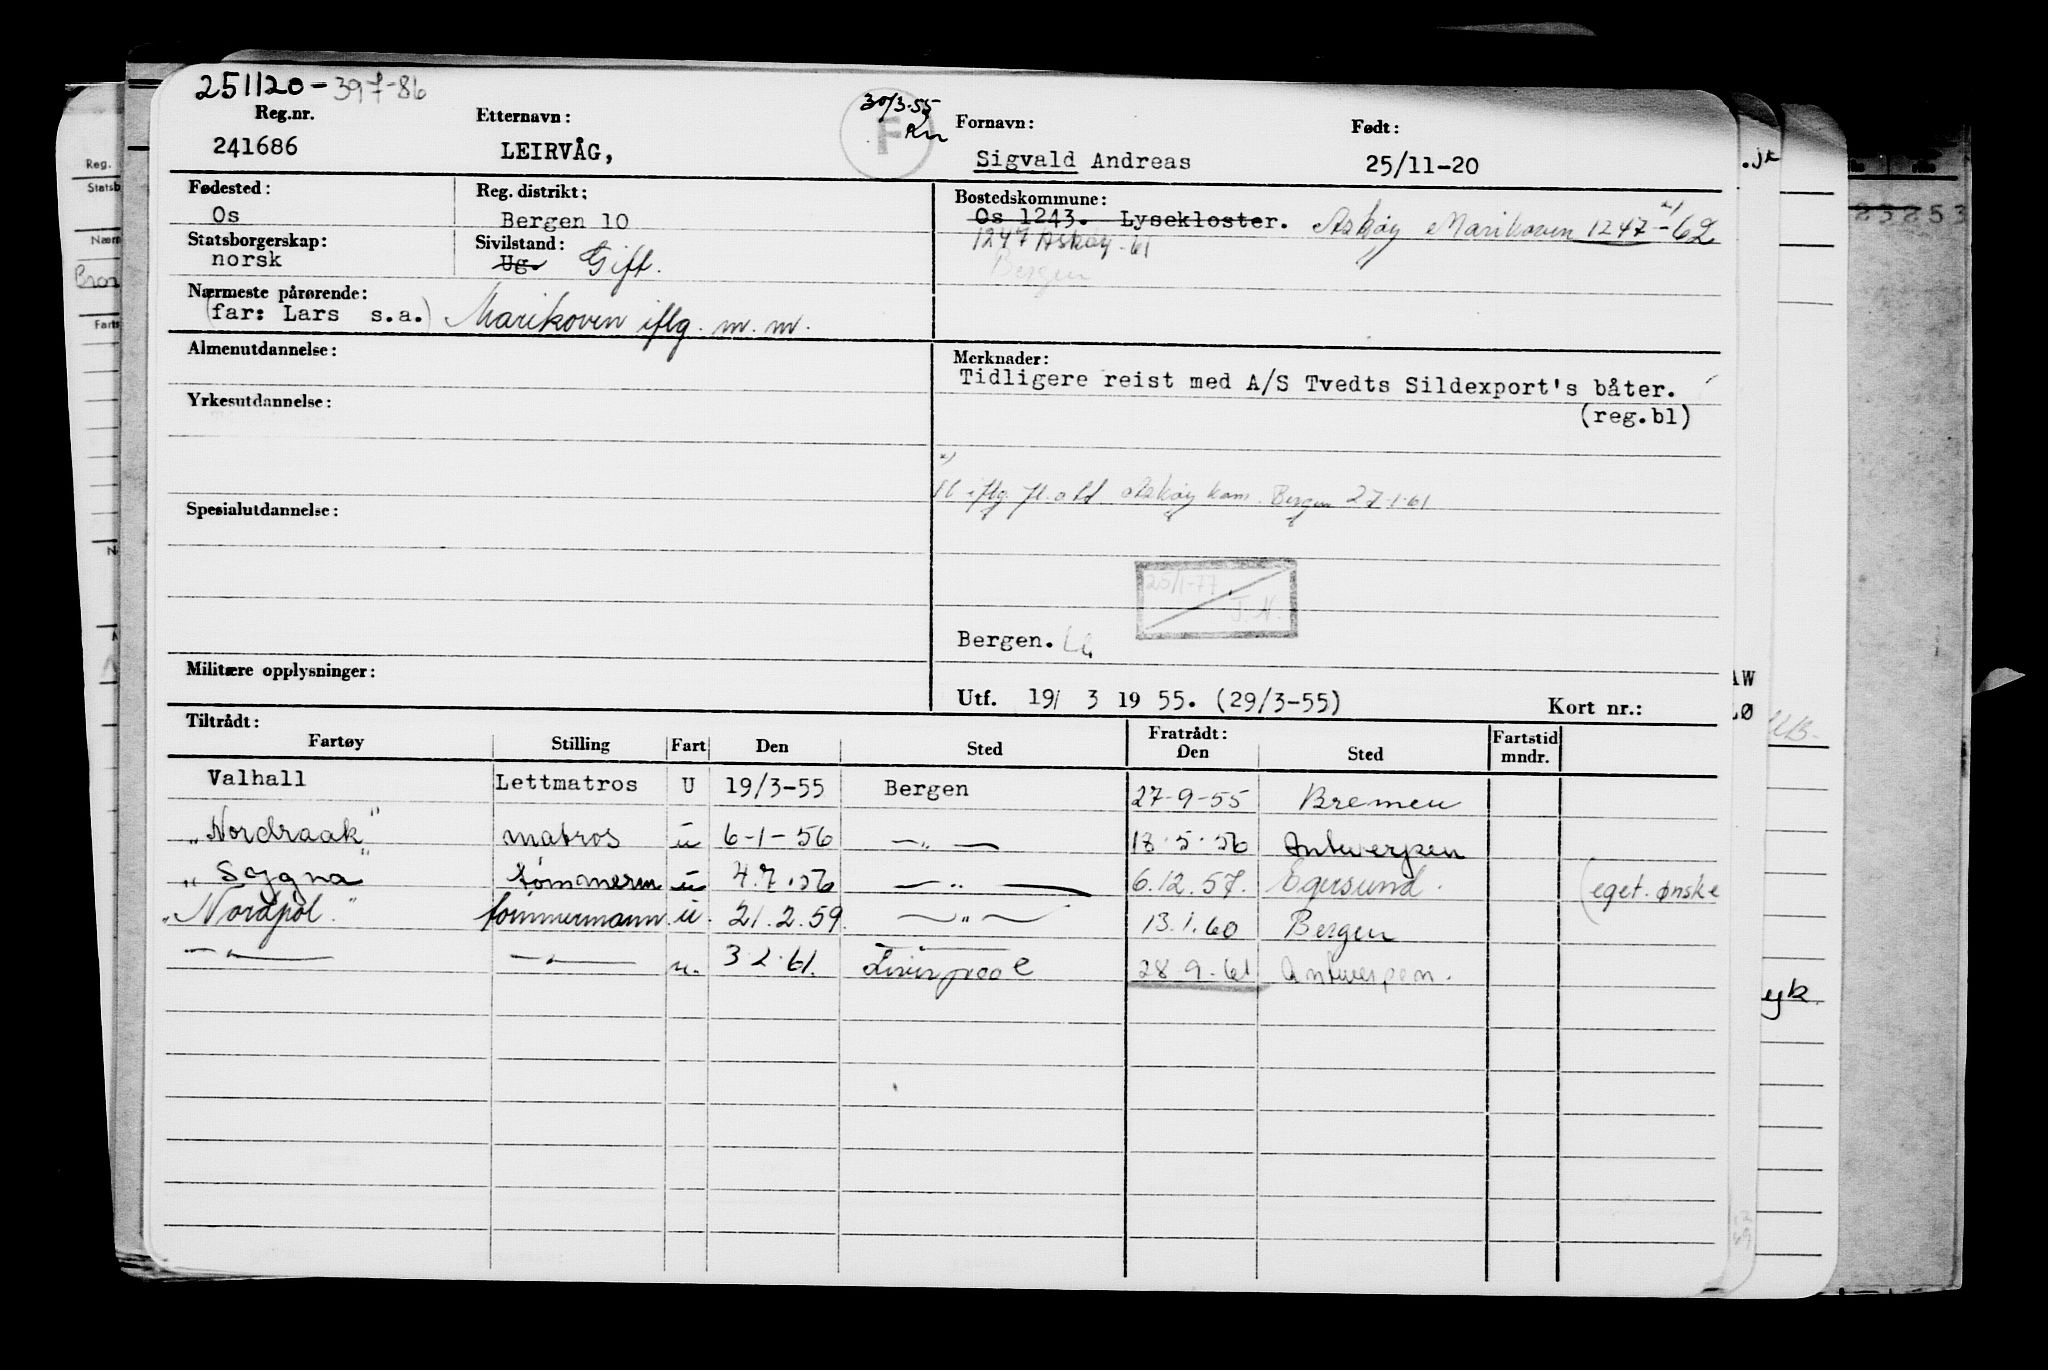 251120-397-86
Reg.nr. Etternavn: 30/3-55 Fornavn: Født:
241686 LEIRVÅG, F Sigvald Andreas 25/11-20
Fødested: Reg. distrikt: Bostedskommune:
Os Bergen 10 Os 1243. Lysekloster. Askøy Marikoven 1247-62 x)
Statsborgerskap: Sivilstand: 1247 Askøy-61
norsk Ug. Gift. Bergen
Nærmeste pårørende:
(far: Lars s.a.) Marikoven iflg. m. m.
Almenutdannelse: Merknader:
Tidligere reist med A/S Tvedts Sildexport's båter.
(reg.bl)
Yrkesutdannelse:
x)
iflg. fl. att Askøy kom. Bergen 27-1-61
Spesialutdannelse:
25/1-77
J.N.
Bergen.
Militære opplysninger:
Utf. 19/ 3 19 55. (29/3-55) Kort nr.:
Tiltrådt: Fratrådt:
Fartøy Stilling Fart Den Sted Den Sted Fartstid mndr.
Valhall Lettmatros U 19/3-55 Bergen 27-9-55 Bremen
„Nordraak" matros u 6-1-56 —„— 18.5.56 Antwerpen
„Sogna" tømmerm u 4.7.56 —„— 6.12.57. Egersund. (eget. ønske
„Nordpol." tømmermann u. 21.2.59. —„— 13.1.60 Bergen
—„— —„— u. 3.2.61. Liverpool 28.9.61 Antwerpen.